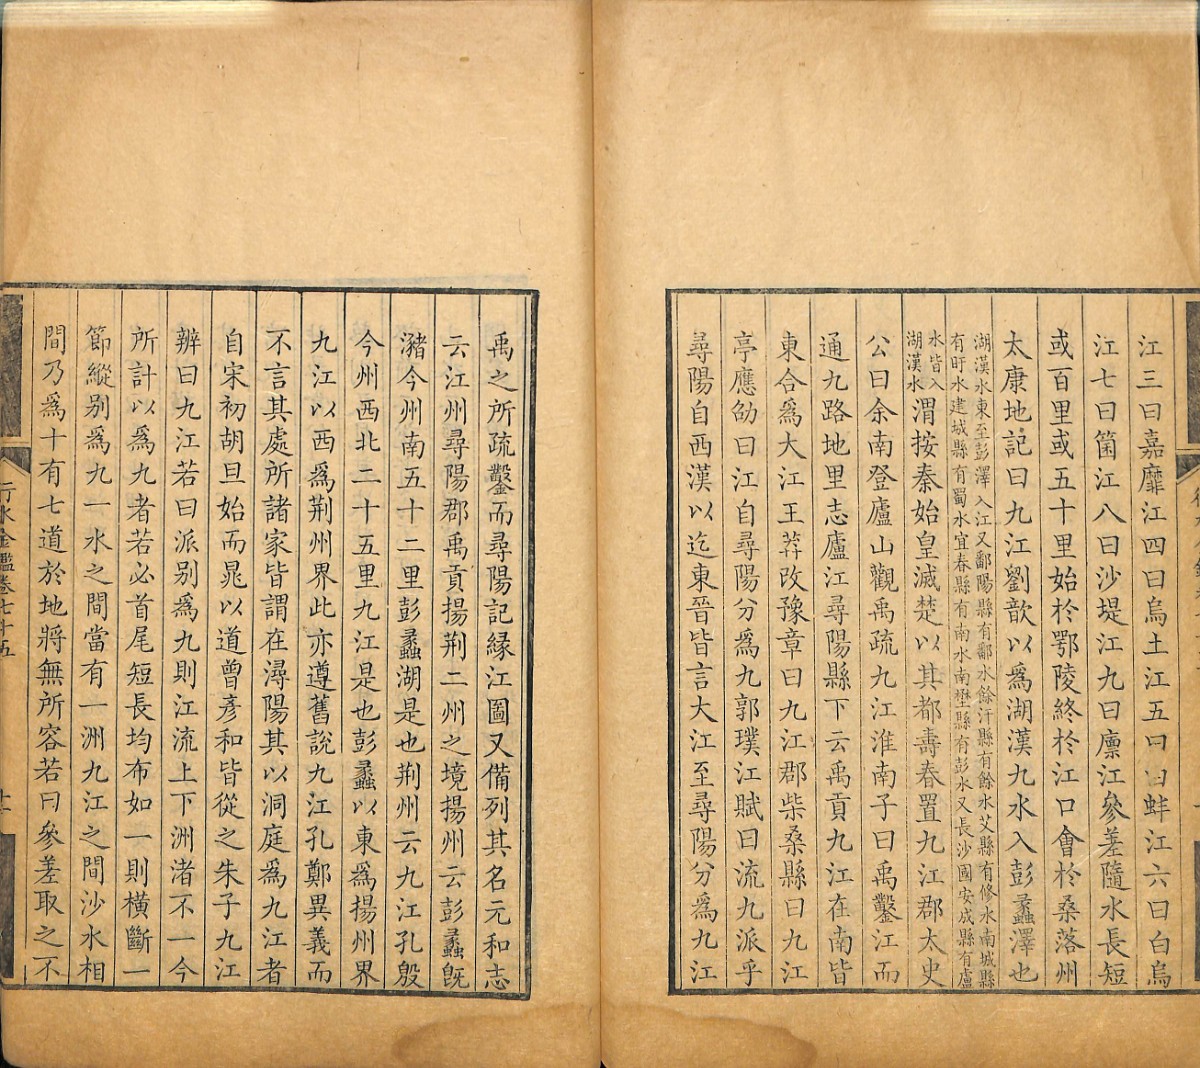 江三曰嘉靡江四曰烏土江五曰白蚌江六曰白烏
江七曰箘江八曰沙堤江九曰廪江參差隨水長短
或百里或五十里始於鄂陵終於江口會於桑落州
太康地記曰九江劉歆以爲湖漢九水入彭蠡澤也
湖漢水東至彭澤入江又鄱陽縣有鄱水餘汗縣有餘水艾縣有修水南城縣
有旴水建城縣有蜀水宜春縣有南水南壄縣有彭水又長沙國安成縣有廬
水皆入
湖漢水
渭按秦始皇滅楚以其都壽春置九江郡太史
公曰余南登廬山觀禹疏九江淮南子曰禹鑿江而
通九路地里志廬江尋陽縣下云禹貢九江在南皆
東合爲大江王莽改豫章曰九江郡柴桑縣曰九江
亭應劭曰江自尋陽分爲九郭璞江賦曰流九派乎
尋陽自西漢以迄東晉皆言大江至尋陽分爲九江
禹之所疏鑿而尋陽記緣江圖又備列其名元和志
云江州尋陽郡禹貢揚荆二州之境揚州云彭蠡旣
瀦今州南五十二里彭蠡湖是也荆州云九江孔殷
今州西北二十五里九江是也彭蠡以東爲揚州界
九江以西爲荆州界此亦遵舊說九江孔鄭異義而
不言其處所諸家皆謂在潯陽其以洞庭爲九江者
自宋初胡旦始而晁以道曾彥和皆從之朱子九江
辨曰九江若曰派别爲九則江流上下洲渚不一今
所計以爲九者若必首尾短長均布如一則橫斷一
節縱别爲九一水之間當有一洲九江之間沙水相
間乃爲十有七道於地將無所容若曰參差取之不
行水金鑑卷七十五